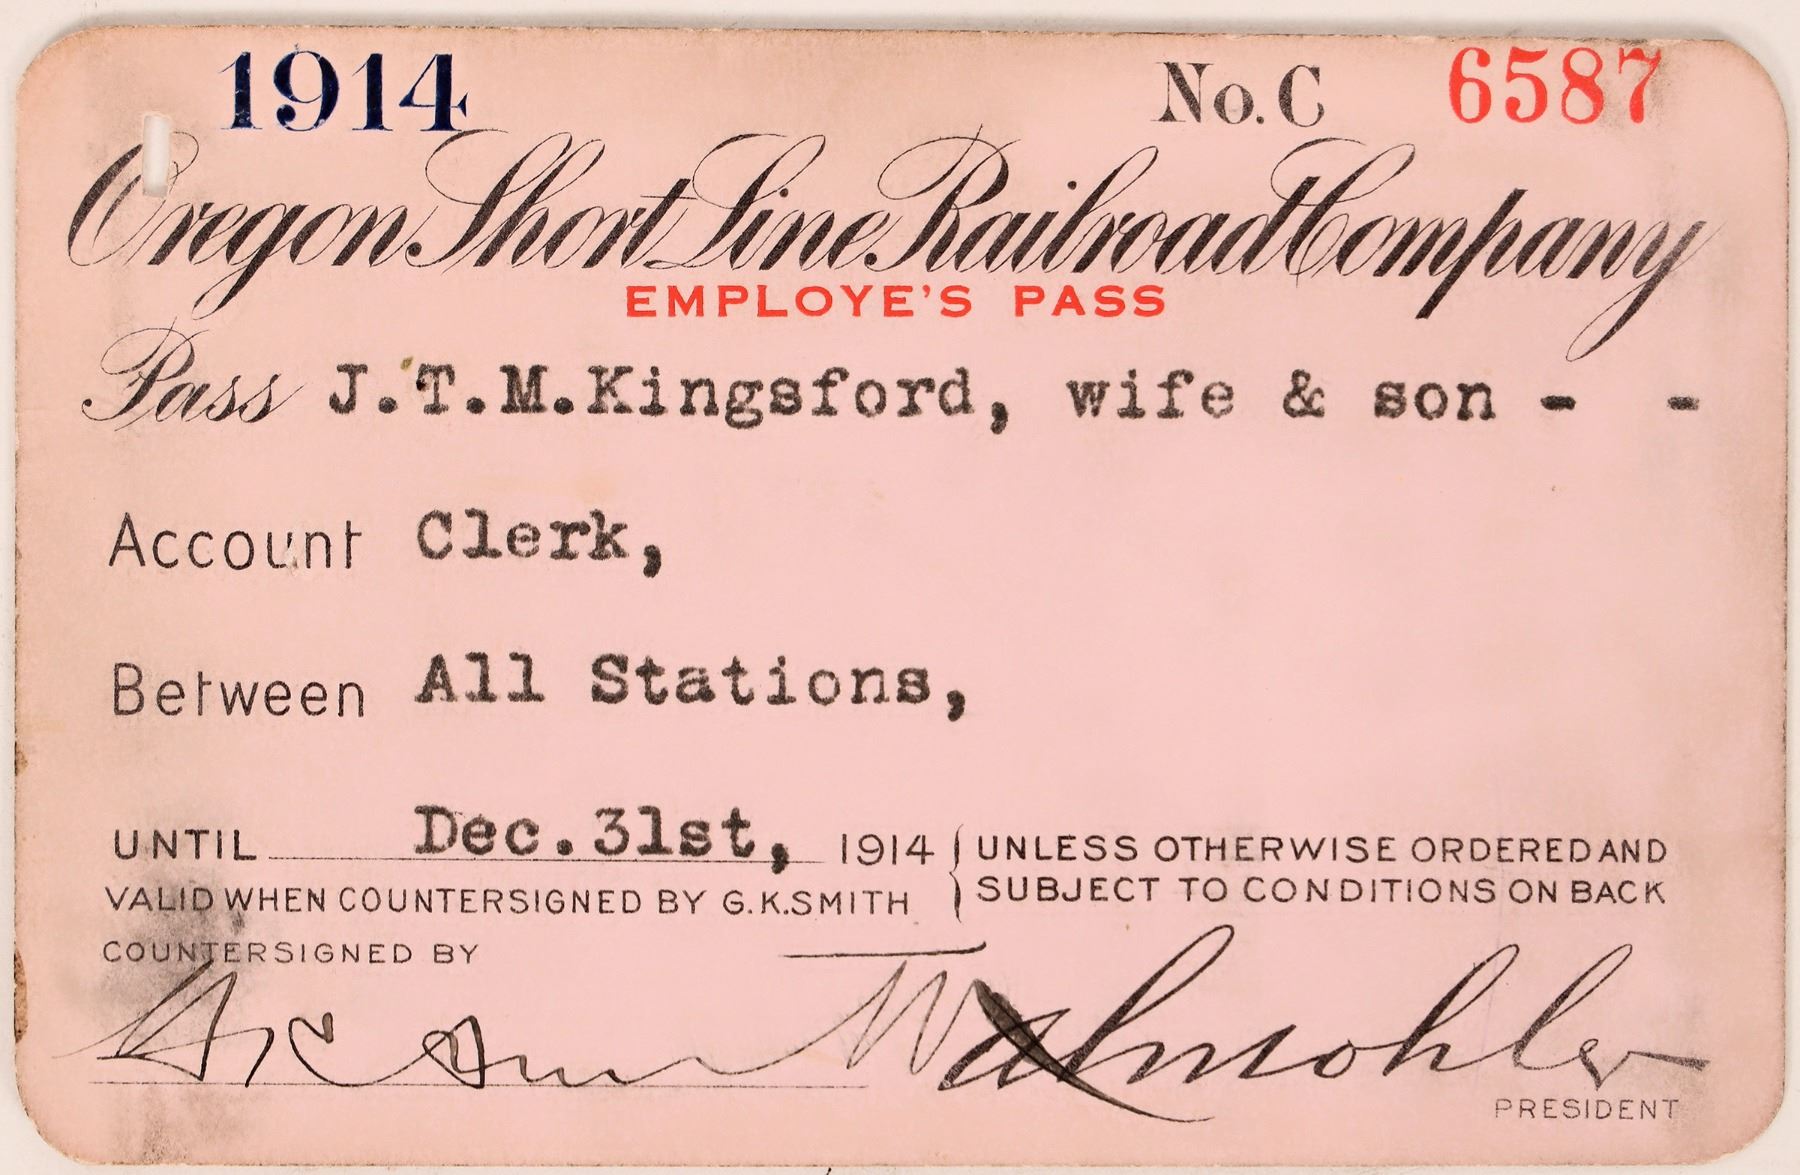 1914 No. C 6587
Oregon Short Line Railroad Company
EMPLOYE'S PASS
Pass J.T.M.Kingsford, wife & son - -
Account Clerk,
Between All Stations,
UNTIL Dec.31st, 1914 { UNLESS OTHERWISE ORDERED AND
VALID WHEN COUNTERSIGNED BY G.K.SMITH SUBJECT TO CONDITIONS ON BACK
COUNTERSIGNED BY
PRESIDENT